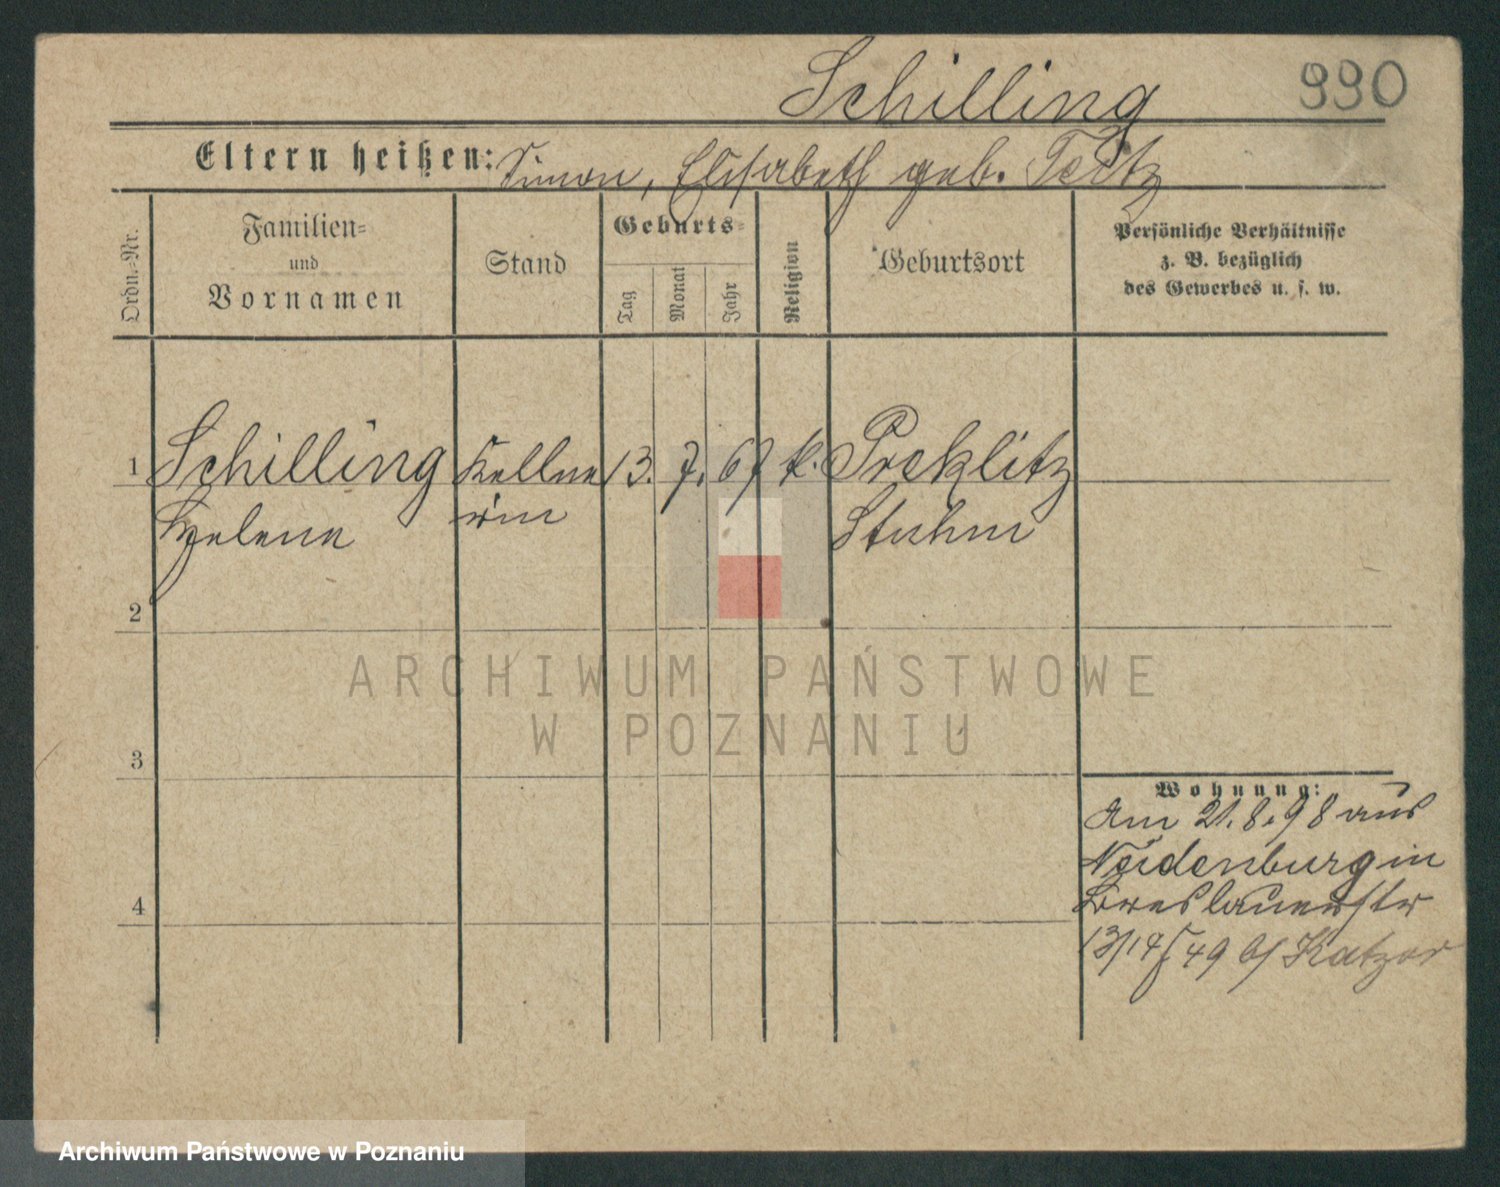 Schilling
990
Eltern heißen: Simon, Elisabeth geb. Teitz
Ordn.-Nr.
Familien-
und
Vornamen
Stand
Geburts-
Tag
Monat
Jahr
Religion
Geburtsort
Persönliche Verhältnisse
z. B. bezüglich
des Gewerbes u. s. w.
1 Schilling Kellne 13. 7. 67 k. Preklitz
Helene rin Stuhm
2
3
4
Wohnung:
Am 21.8.98 aus
Neidenburg in
Breslauerstr
13/14 49 b/ Katzor
ARCHIWUM PAŃSTWOWE
W POZNANIU
Archiwum Państwowe w Poznaniu